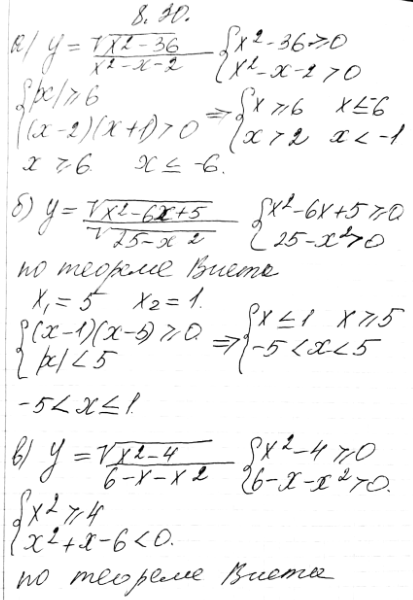 8.30.
а) y = √(x² - 36) / (x² - x - 2) { x² - 36 ≥ 0
{ x² - x - 2 > 0
{ |x| ≥ 6
{ (x - 2)(x + 1) > 0 ⇒ { x ≥ 6 x ≤ -6
{ x > 2 x < -1
x ≥ 6. x ≤ -6.
б) y = √(x² - 6x + 5) / √(25 - x²) { x² - 6x + 5 ≥ 0
{ 25 - x² > 0
по теореме Виета
x₁ = 5 x₂ = 1.
{ (x - 1)(x - 5) ≥ 0
{ |x| < 5 ⇒ { x ≤ 1 x ≥ 5
{ -5 < x < 5
-5 < x ≤ 1.
в) y = √(x² - 4) / (6 - x - x²) { x² - 4 ≥ 0
{ 6 - x - x² > 0.
{ x² ≥ 4
{ x² + x - 6 < 0.
по теореме Виета